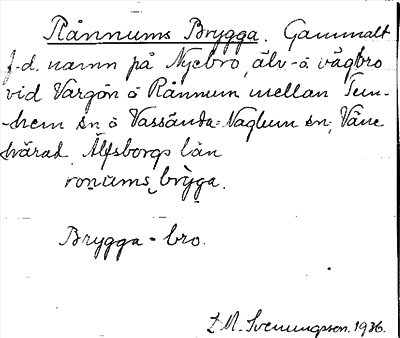 Rånnums Brygga. Gammalt
f.d. namn på Nyebro, älv- o vägbro
vid Vargön o Rånnum mellan Tun-
-hem sn o Vassända-Naglum sn, Väne
härad Älfsborgs län
ronums brỳga.
Brygga = bro.
D.A. Svenungsson. 1936.